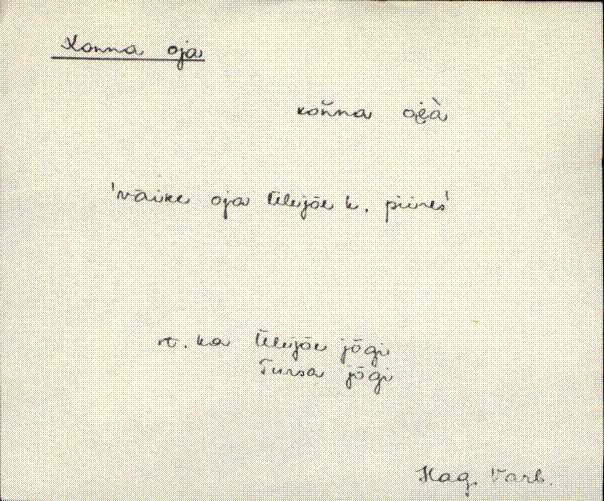 Konna oja
koǹna oi̯à
'väike oja Ülejõe k. piires'
vt. ka Ülejõe jõgi
Tursa jõgi
Hag. Varb.